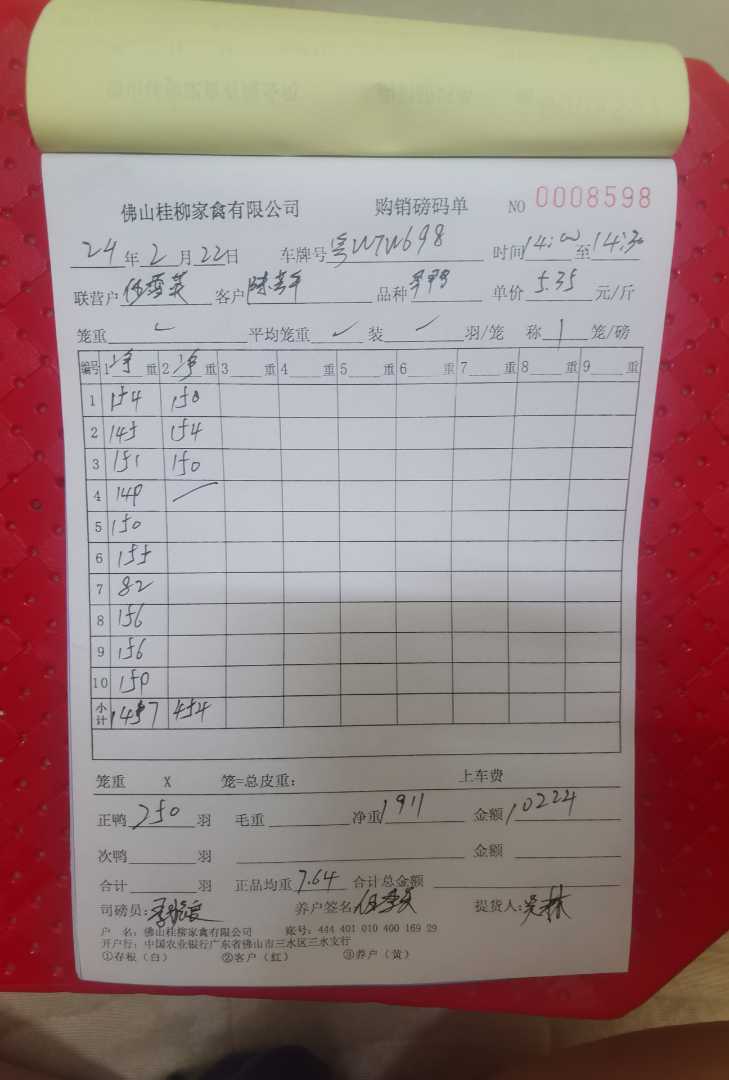 佛山桂柳家禽有限公司 购销磅码单 NO 0008598
24年2月22日 车牌号粤W7W698 时间14:00至14:30
联营户 客户 品种 单价5.35元/斤
笼重 平均笼重 装 羽/笼 称1笼/磅
编号 1净重 2净重 3 重 4 重 5 重 6 重 7 重 8 重 9 重
1 154 150
2 145 154
3 151 150
4 148
5 150
6 155
7 82
8 156
9 156
10 150
小计 1457 454
笼重 X 笼=总皮重: 上车费
正鸭250羽 毛重 净重1911 金额10224
次鸭 羽 金额
合计 羽 正品均重7.64 合计总金额
司磅员: 养户签名 提货人:
户 名: 佛山桂柳家禽有限公司 账号: 444 401 010 400 169 29
开户行: 中国农业银行广东省佛山市三水区三水支行
①存根(白) ②客户(红) ③养户(黄)